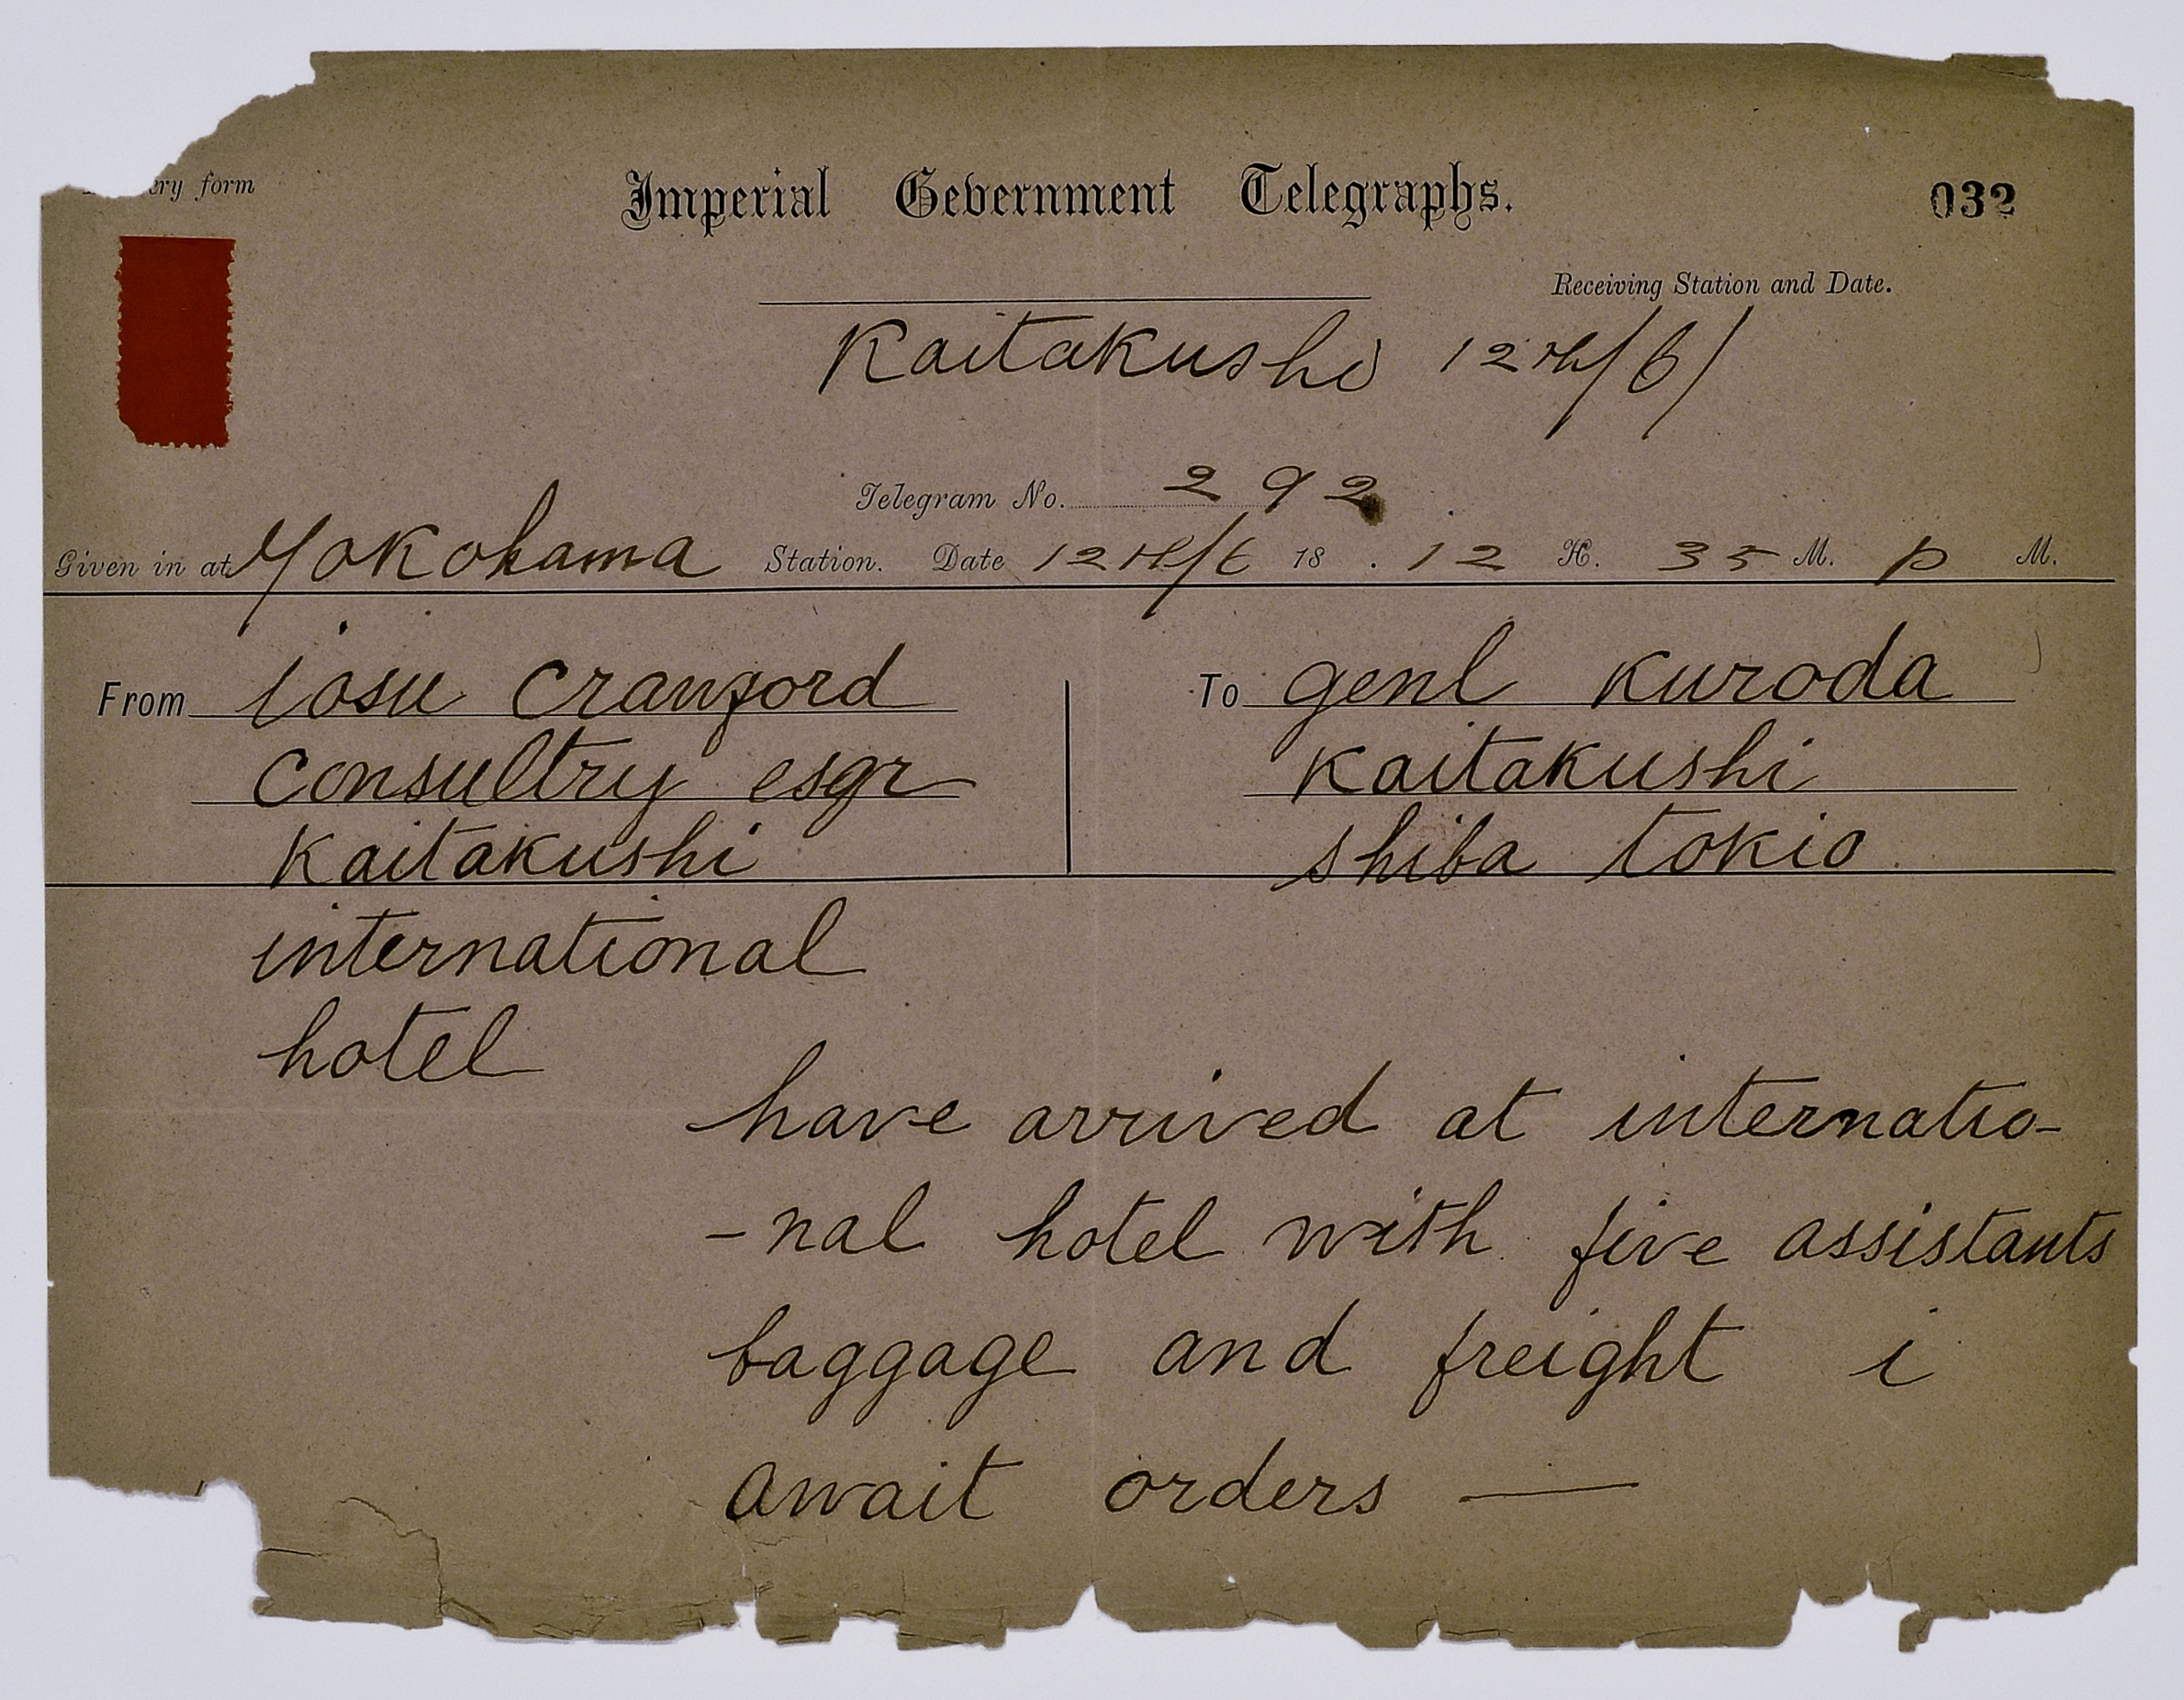 ery form
Imperial Gevernment Telegraphs.
032
Receiving Station and Date.
Kaitakushi 12th/6/
Telegram No. 292
Given in at Yokohama Station. Date 12th/6 18 . 12 H. 35 M. p M.
From iosu Cranford
To genl Kuroda
Consultry esgr
Kaitakushi
Kaitakushi
shiba tokio
international
hotel
have arrived at internatio-
-nal hotel with five assistants
baggage and freight i
await orders —